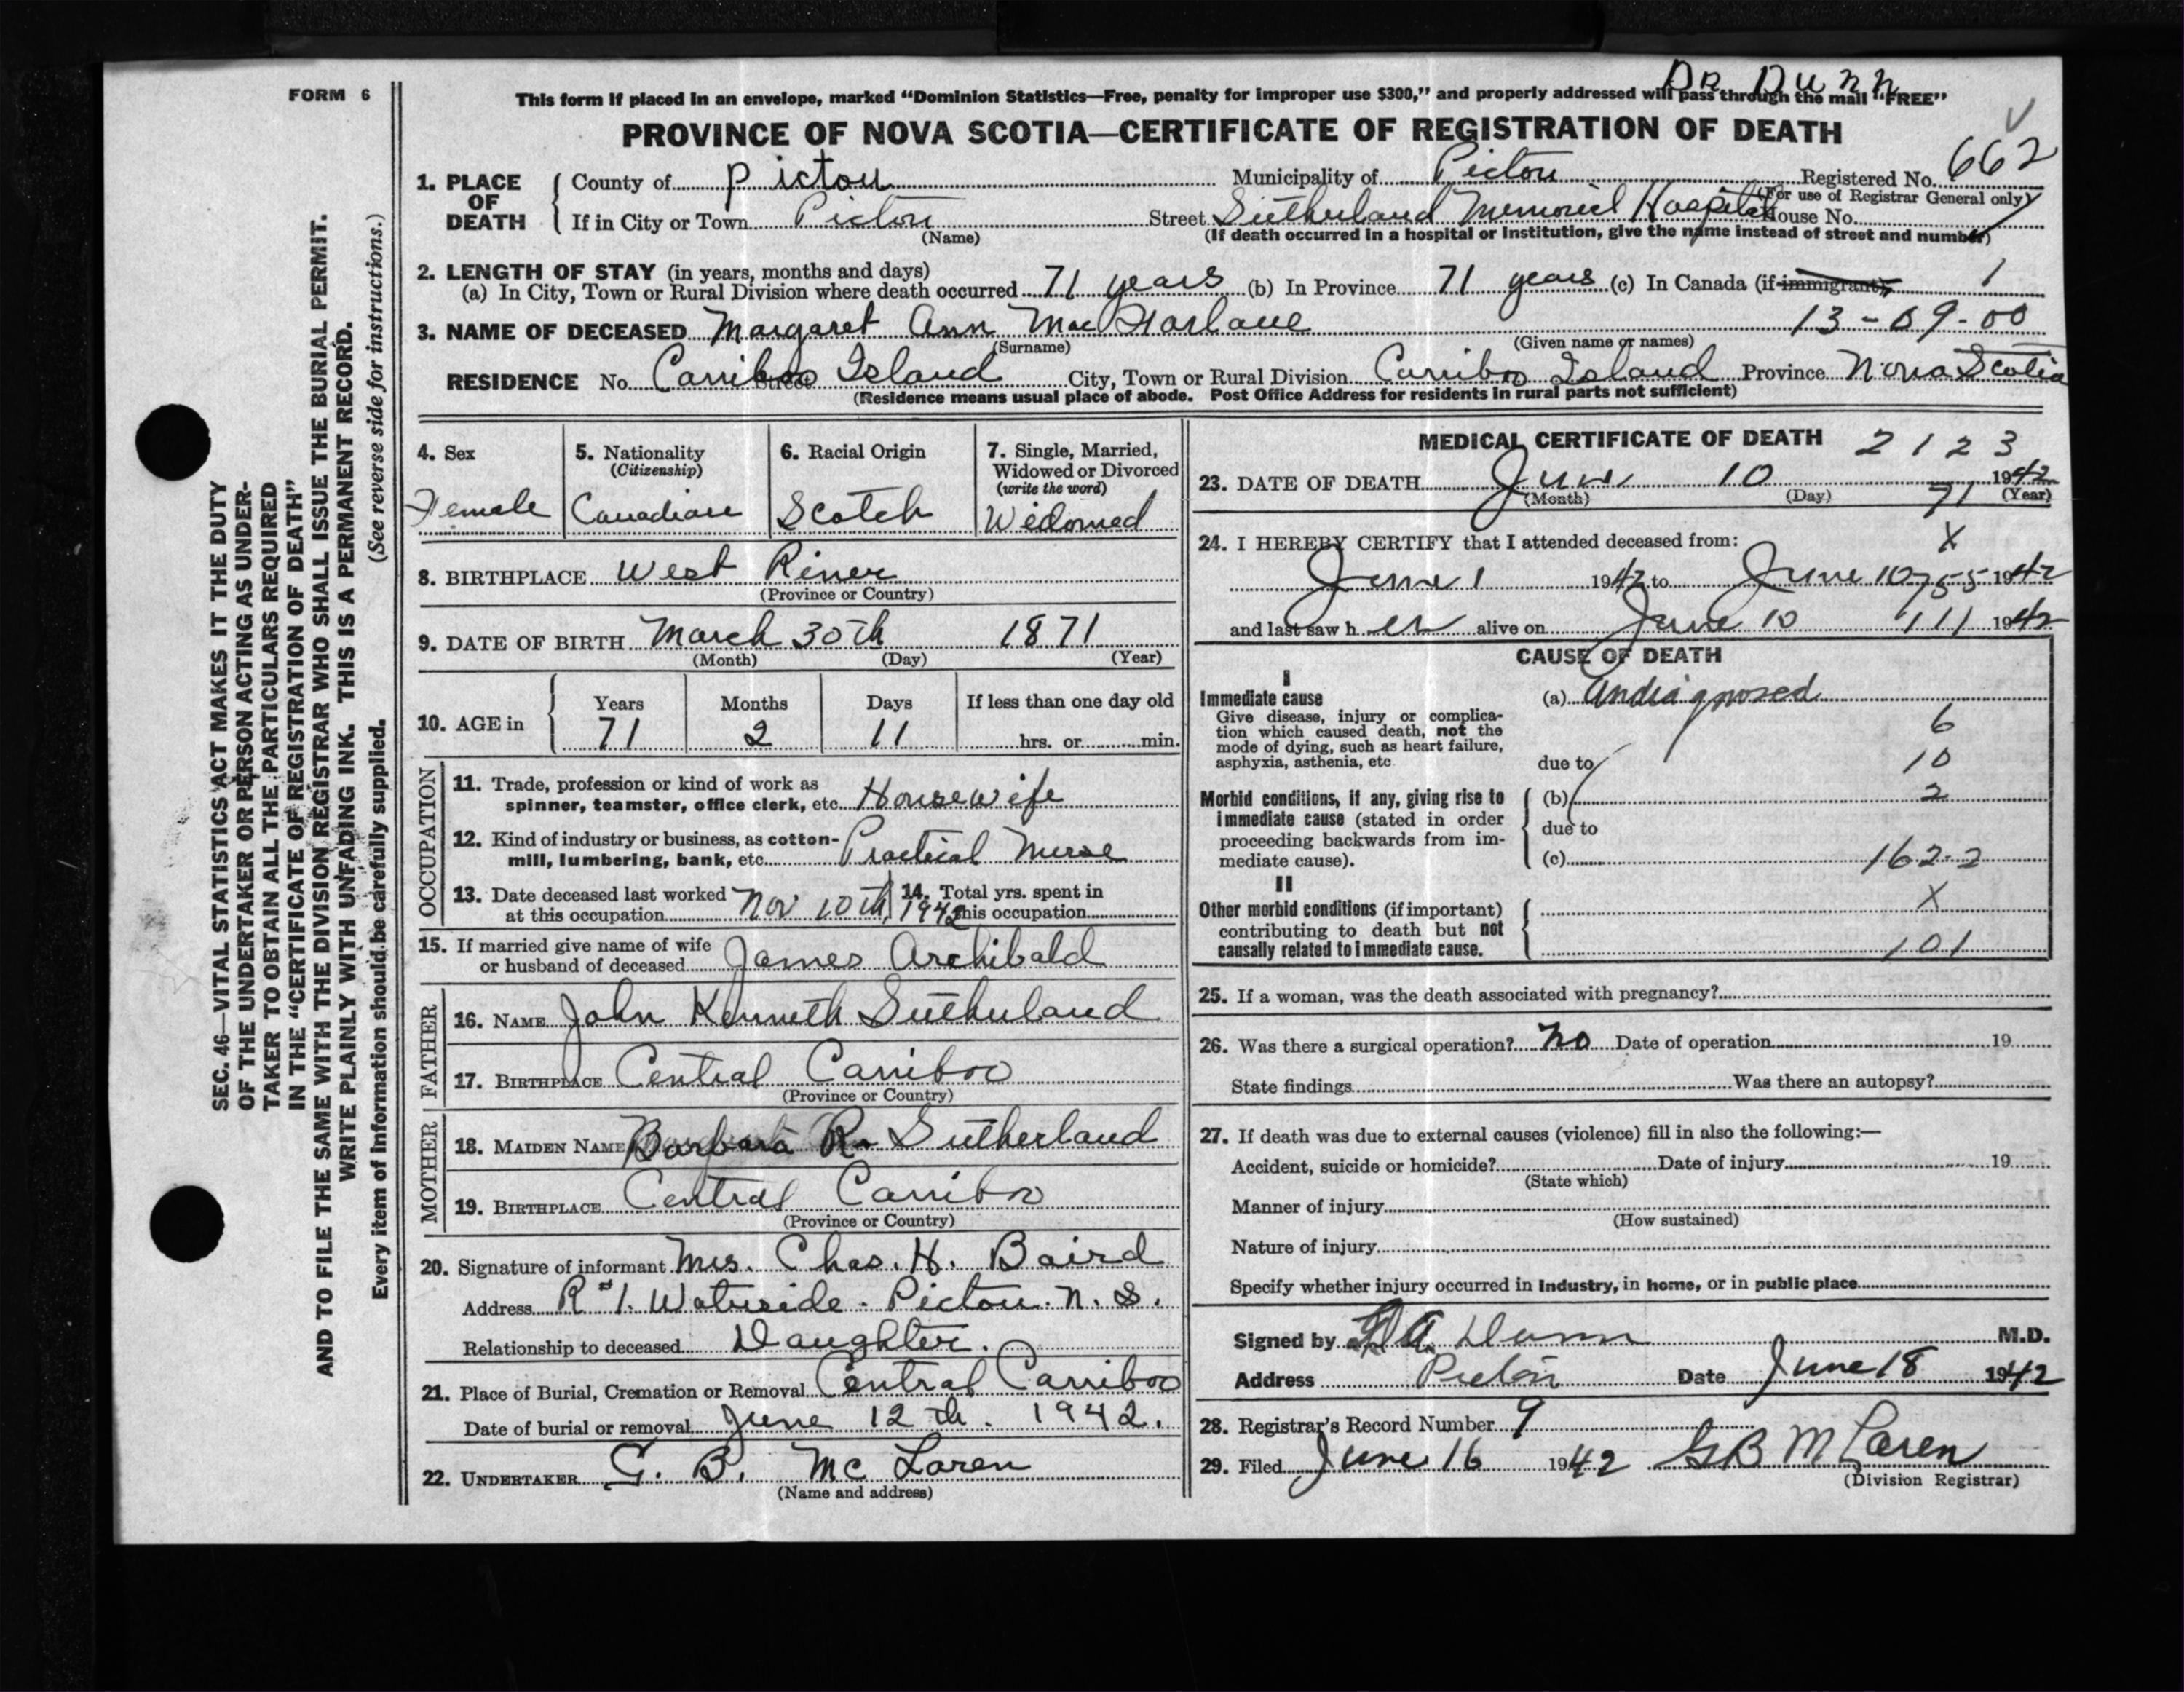 FORM 6
DR DUNN
This form if placed in an envelope, marked "Dominion Statistics—Free, penalty for improper use $300," and properly addressed will pass through the mail "FREE"
PROVINCE OF NOVA SCOTIA—CERTIFICATE OF REGISTRATION OF DEATH
1. PLACE OF DEATH County of Pictou Municipality of Pictou Registered No. 662
(For use of Registrar General only)
If in City or Town Pictou Street Sutherland Memorial Hospital House No.
(Name) (If death occurred in a hospital or institution, give the name instead of street and number)
2. LENGTH OF STAY (in years, months and days)
(a) In City, Town or Rural Division where death occurred 71 years (b) In Province 71 years (c) In Canada (if immigrant) 1
3. NAME OF DECEASED Margaret Ann MacFarlane 13-09-00
(Surname) (Given name or names)
RESIDENCE No. Carriboo Island Street City, Town or Rural Division Carriboo Island Province Nova Scotia
(Residence means usual place of abode. Post Office Address for residents in rural parts not sufficient)
4. Sex 5. Nationality 6. Racial Origin 7. Single, Married,
(Citizenship) Widowed or Divorced
(write the word)
Female Canadian Scotch Widowed
8. BIRTHPLACE West River
(Province or Country)
9. DATE OF BIRTH March 30th 1871
(Month) (Day) (Year)
10. AGE in Years Months Days If less than one day old
71 2 11 hrs. or min.
OCCUPATION
11. Trade, profession or kind of work as
spinner, teamster, office clerk, etc. Housewife
12. Kind of industry or business, as cotton-
mill, lumbering, bank, etc. Practical Nurse
13. Date deceased last worked 14. Total yrs. spent in
at this occupation Nov 10th, 1942 this occupation
15. If married give name of wife
or husband of deceased James Archibald
FATHER
16. NAME John Kenneth Sutherland
17. BIRTHPLACE Central Carriboo
(Province or Country)
MOTHER
18. MAIDEN NAME Barbara R. Sutherland
19. BIRTHPLACE Central Carriboo
(Province or Country)
20. Signature of informant Mrs. Chas. H. Baird
Address R#1. Waterside. Pictou. N. S.
Relationship to deceased Daughter.
21. Place of Burial, Cremation or Removal Central Carriboo
Date of burial or removal June 12th. 1942.
22. UNDERTAKER G. B. McLaren
(Name and address)
MEDICAL CERTIFICATE OF DEATH 2123
23. DATE OF DEATH June 10 1942
(Month) (Day) 71 (Year)
24. I HEREBY CERTIFY that I attended deceased from: X
June 1 1942 to June 10 755 1942
and last saw her alive on June 10 111 1942
CAUSE OF DEATH
I
Immediate cause (a) Undiagnosed
Give disease, injury or complica-
tion which caused death, not the 6
mode of dying, such as heart failure,
asphyxia, asthenia, etc. due to 10
Morbid conditions, if any, giving rise to (b) 2
immediate cause (stated in order due to
proceeding backwards from im-
mediate cause). (c) 162-2
II
Other morbid conditions (if important) X
contributing to death but not
causally related to immediate cause. 101
25. If a woman, was the death associated with pregnancy?
26. Was there a surgical operation? No Date of operation 19
State findings Was there an autopsy?
27. If death was due to external causes (violence) fill in also the following:—
Accident, suicide or homicide? Date of injury 19
(State which)
Manner of injury
(How sustained)
Nature of injury
Specify whether injury occurred in industry, in home, or in public place
Signed by A. Dunn M.D.
Address Pictou Date June 18 1942
28. Registrar's Record Number 9
29. Filed June 16 1942 GB McLaren
(Division Registrar)
SEC. 46—VITAL STATISTICS ACT MAKES IT THE DUTY
OF THE UNDERTAKER OR PERSON ACTING AS UNDER-
TAKER TO OBTAIN ALL THE PARTICULARS REQUIRED
IN THE "CERTIFICATE OF REGISTRATION OF DEATH"
AND TO FILE THE SAME WITH THE DIVISION REGISTRAR WHO SHALL ISSUE THE BURIAL PERMIT.
WRITE PLAINLY WITH UNFADING INK. THIS IS A PERMANENT RECORD.
Every item of information should be carefully supplied. (See reverse side for instructions.)